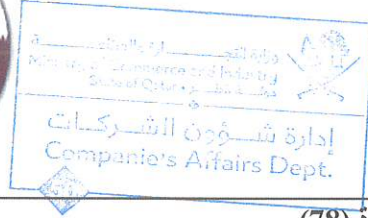 وزارة التجـــــارة والصناعـــــة
Ministry of Commerce and Industry
State of Qatar • دولـــة قطـــر
إدارة شـــؤون الشـــركـــات
Companie's Affairs Dept.
(78)